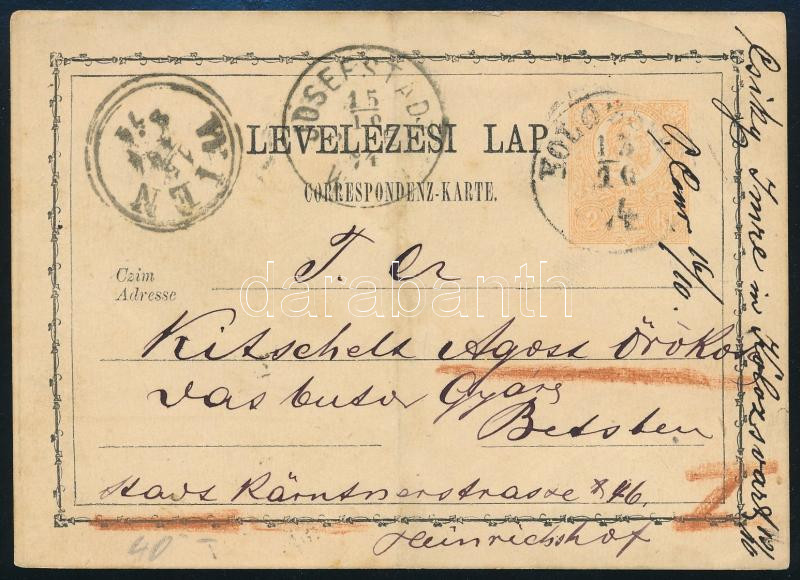 LEVELEZÉSI LAP
CORRESPONDENZ-KARTE.
JOSEFSTADT
15
10
KOLOZS
13
10
WIEN
Czim
Adresse
T. Cz
Kitschelt Agost Örökös
vasbutor Gyára
Betsben
Stadt Kärntnerstrasse № 46.
Heinrichshof
40
Csiky Imre in Kolozsvár
darabanth